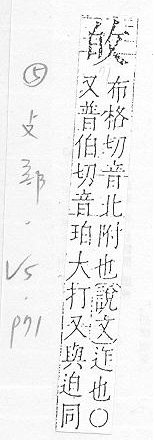 敀
布格切音北附也說文迮也〇
又普伯切音珀大打又與迫同
⑤攴部.V5.P71